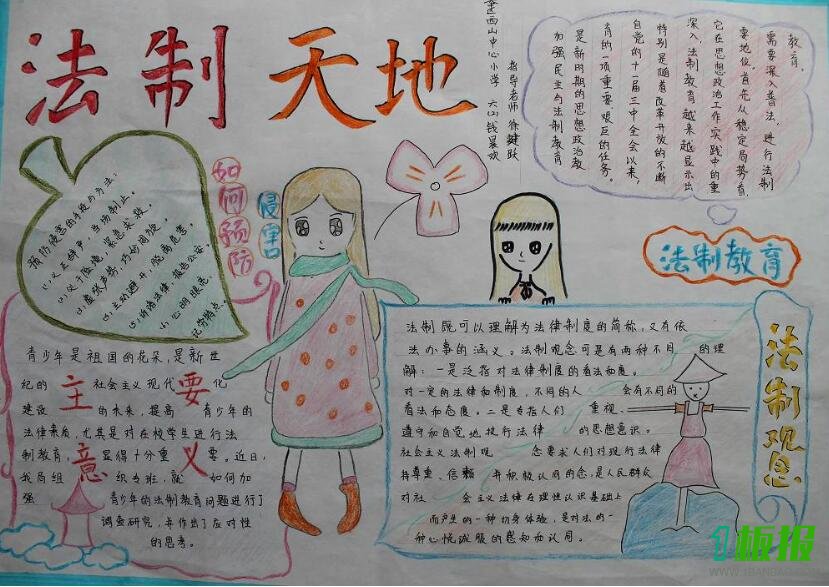 法制天地
西山中心小学 六(2)钱晨欢
指导老师 徐建跃
教育,
需要深入普法,进行法制
要地位,首先从稳定局势看,
它在思想政治工作实践中的重
深入,法制教育越来越显示出
特别是随着改革开放的不断
自党的十一届三中全会以来,
育的一项重要艰巨的任务。
是新时期的思想政治教
加强民主与法制教育
法制教育
如何预防
侵害
预防侵害的手段与方法:
(1)义正辞严,当场制止。
(2)处于险境,紧急求援。
(3)虚张声势,巧妙周旋。
(4)主动避开,脱离危害
(5)诉诸法律,报告公安
(6)心明眼亮,
记劳特点。
青少年是祖国的花朵,是新世
纪的 社会主义现代化
建设 的未来,提高 青少年的
法律素质,尤其是对在校学生进行法
制教育,显得十分重要。近日,
我局组织专班,就 如何加
强 青少年的法制教育问题进行了
调查研究,并作出了应对性
的思考。
主要
意义
法制既可以理解为法律制度的简称,又有依
法办事的涵义。法制观念可是有两种不同 的理
解:一是泛指对法律制度的看法和态度。
对一定的法律和制度,不同的人 会有不同的
看法和态度。二是专指人们 重视、
遵守和自觉地执行法律 的思想意识。
社会主义法制观 念要求人们对现行法律
持尊重、信赖 并积极认同的念,是人民群众
对社 会主义法律在理性认识基础上
而产生的一种切身体验,是对法的一
种心悦诚服的感知和认同。
法制观念
1板报
WWW.1BANBAO.COM